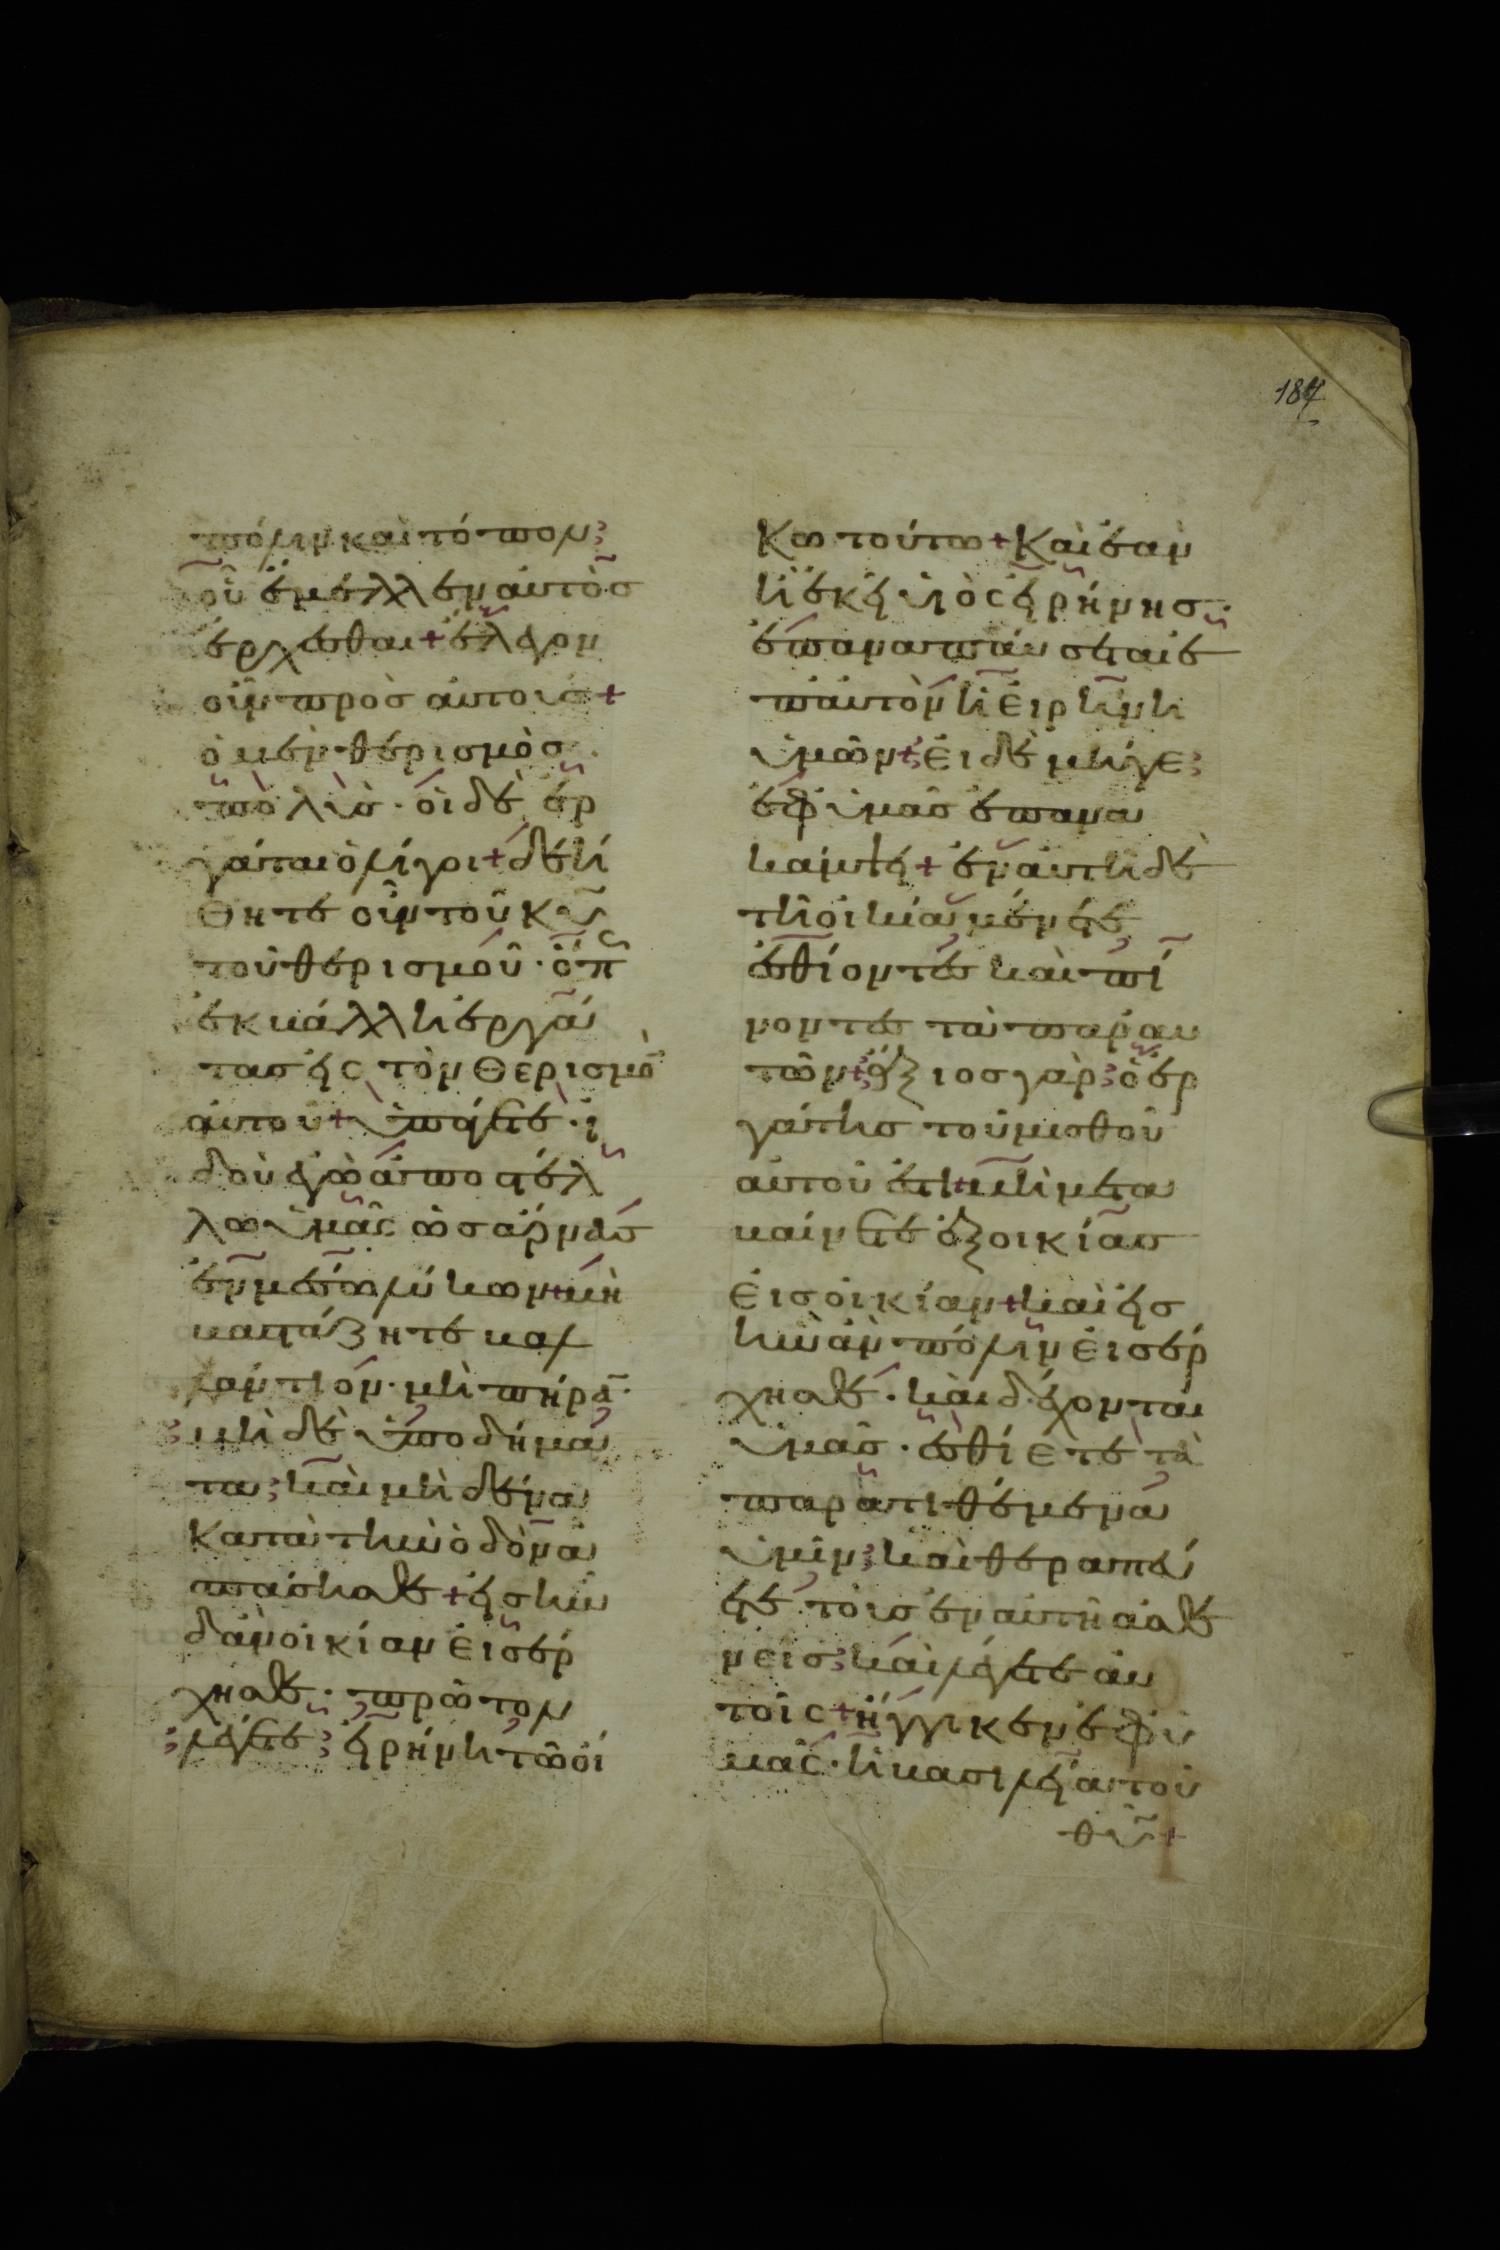 187
πόλιν καὶ τόπον
οὗ ἔμελλεν αὐτὸς
ἔρχεσθαι + ἔλεγον
οὖν πρὸς αὐτοὺς +
ὁ μὲν θερισμὸς
πολὺς · οἱ δὲ ἐρ
γάται ὀλίγοι + δεή
θητε οὖν τοῦ κ̅υ̅
τοῦ θερισμοῦ · ὅπ
ἐκβάλλη ἐργά
τας εἰς τὸν θερισμὸ
αὐτοῦ + ὑπάγετε · ἰ
δοὺ ἐγὼ ἀποστέλ
λω ὑμᾶς ὡς ἄρνας
ἐν μέσω λύκων + μὴ
βαστάζητε βαλ
λάντιον · μὴ πήρα ·
μὴ δὲ ὑποδήμα
τα καὶ μὴ δένα
κατὰ τὴν ὁδὸν ἀ
σπάσησθε + εἰς ἣν
δἂν οἰκίαν εἰσέρ
χησθε · πρῶτον
λέγετε εἰρήνη τῶ οἴ
κω τούτω + καὶ ἐὰν
ἢ ἐκεῖ υἱὸς εἰρήνης ·
ἐπαναπαύσεται ἐ
π αὐτὸν ἡ εἰρήνη
ὑμῶν + εἰ δὲ μήγε
ἐφ ὑμᾶς ἐπανα
κάμψει + ἐν αὐτῆ δὲ
τῆ οἰκία μένετε
ἐσθίοντες καὶ πί
νοντες τὰ παρ αὐ
τῶν + ἄξιος γὰρ ὁ ἐρ
γάτης τοῦ μισθοῦ
αὐτοῦ ἐστι + μὴ μετα
βαίνετε ἐξ οἰκίας
εἰς οἰκίαν + καὶ εἰς
ἣν ἂν πόλιν εἰσέρ
χησθε · καὶ δέχονται
ὑμᾶς · ἐσθίετε τὰ
παρατιθέμενα
ὑμῖν καὶ θεραπεύ
ετε τοὺς ἐν αὐτῆ ἀσθε
νεῖς καὶ λέγετε αὐ
τοῖς + ἤγγικεν ἐφ ὑ
μᾶς · ἡ βασιλεία τοῦ
θ̅υ̅ +